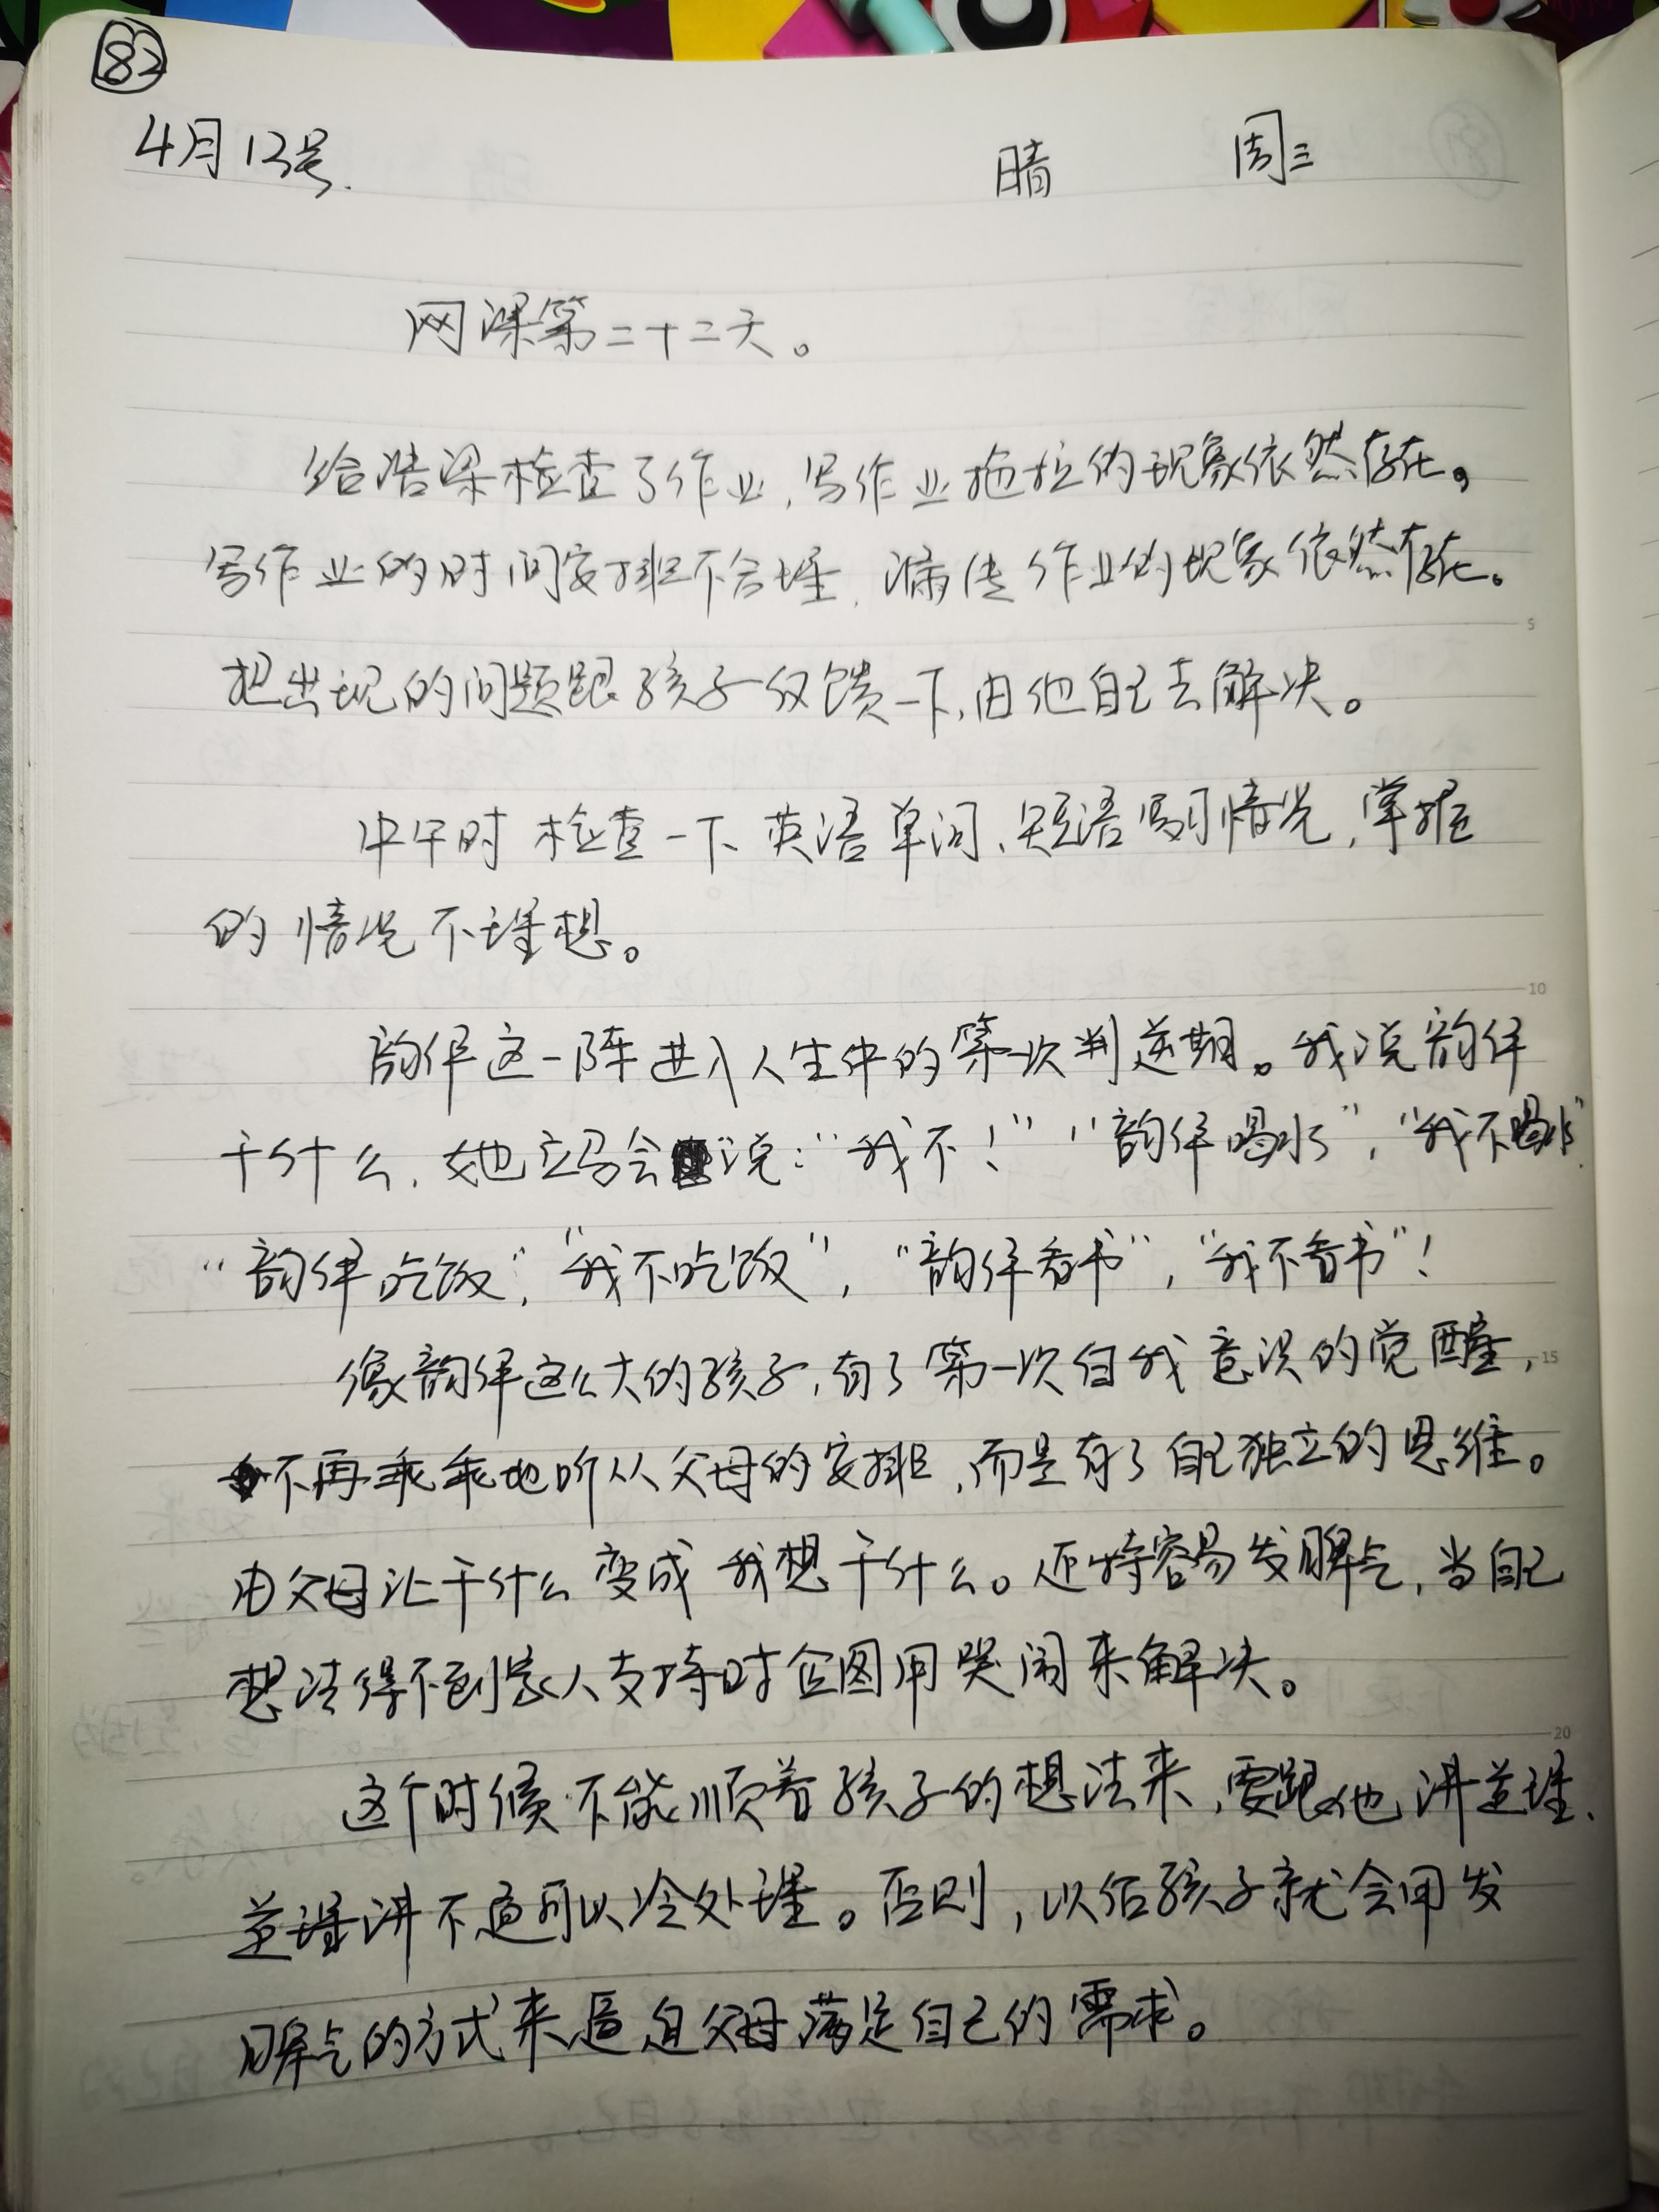 82
4月13号. 晴 周三
网课第二十二天。
给浩深检查了作业,写作业拖拉的现象依然存在。
写作业的时间安排不合理,漏传作业的现象依然存在。
把出现的问题跟孩子反馈一下,由他自己去解决。
中午时检查一下英语单词、短语复习情况,掌握
的情况不理想。
韵伊这一阵进入人生中的第一次判逆期。我说韵伊
干什么,她立马会说:“我不!”“韵伊喝水”,“我不喝水”
“韵伊吃饭”,“我不吃饭”,“韵伊看书”,“我不看书”!
像韵伊这么大的孩子,有了第一次自我意识的觉醒,
不再乖乖地听从父母的安排,而是有了自己独立的思维。
由父母让干什么变成我想干什么。还特容易发脾气,当自己
想法得不到家人支持时企图用哭闹来解决。
这个时候不能顺着孩子的想法来,要跟她讲道理,
道理讲不通可以冷处理。否则,以后孩子就会用发
脾气的方式来逼迫父母满足自己的需求。
5
10
15
20